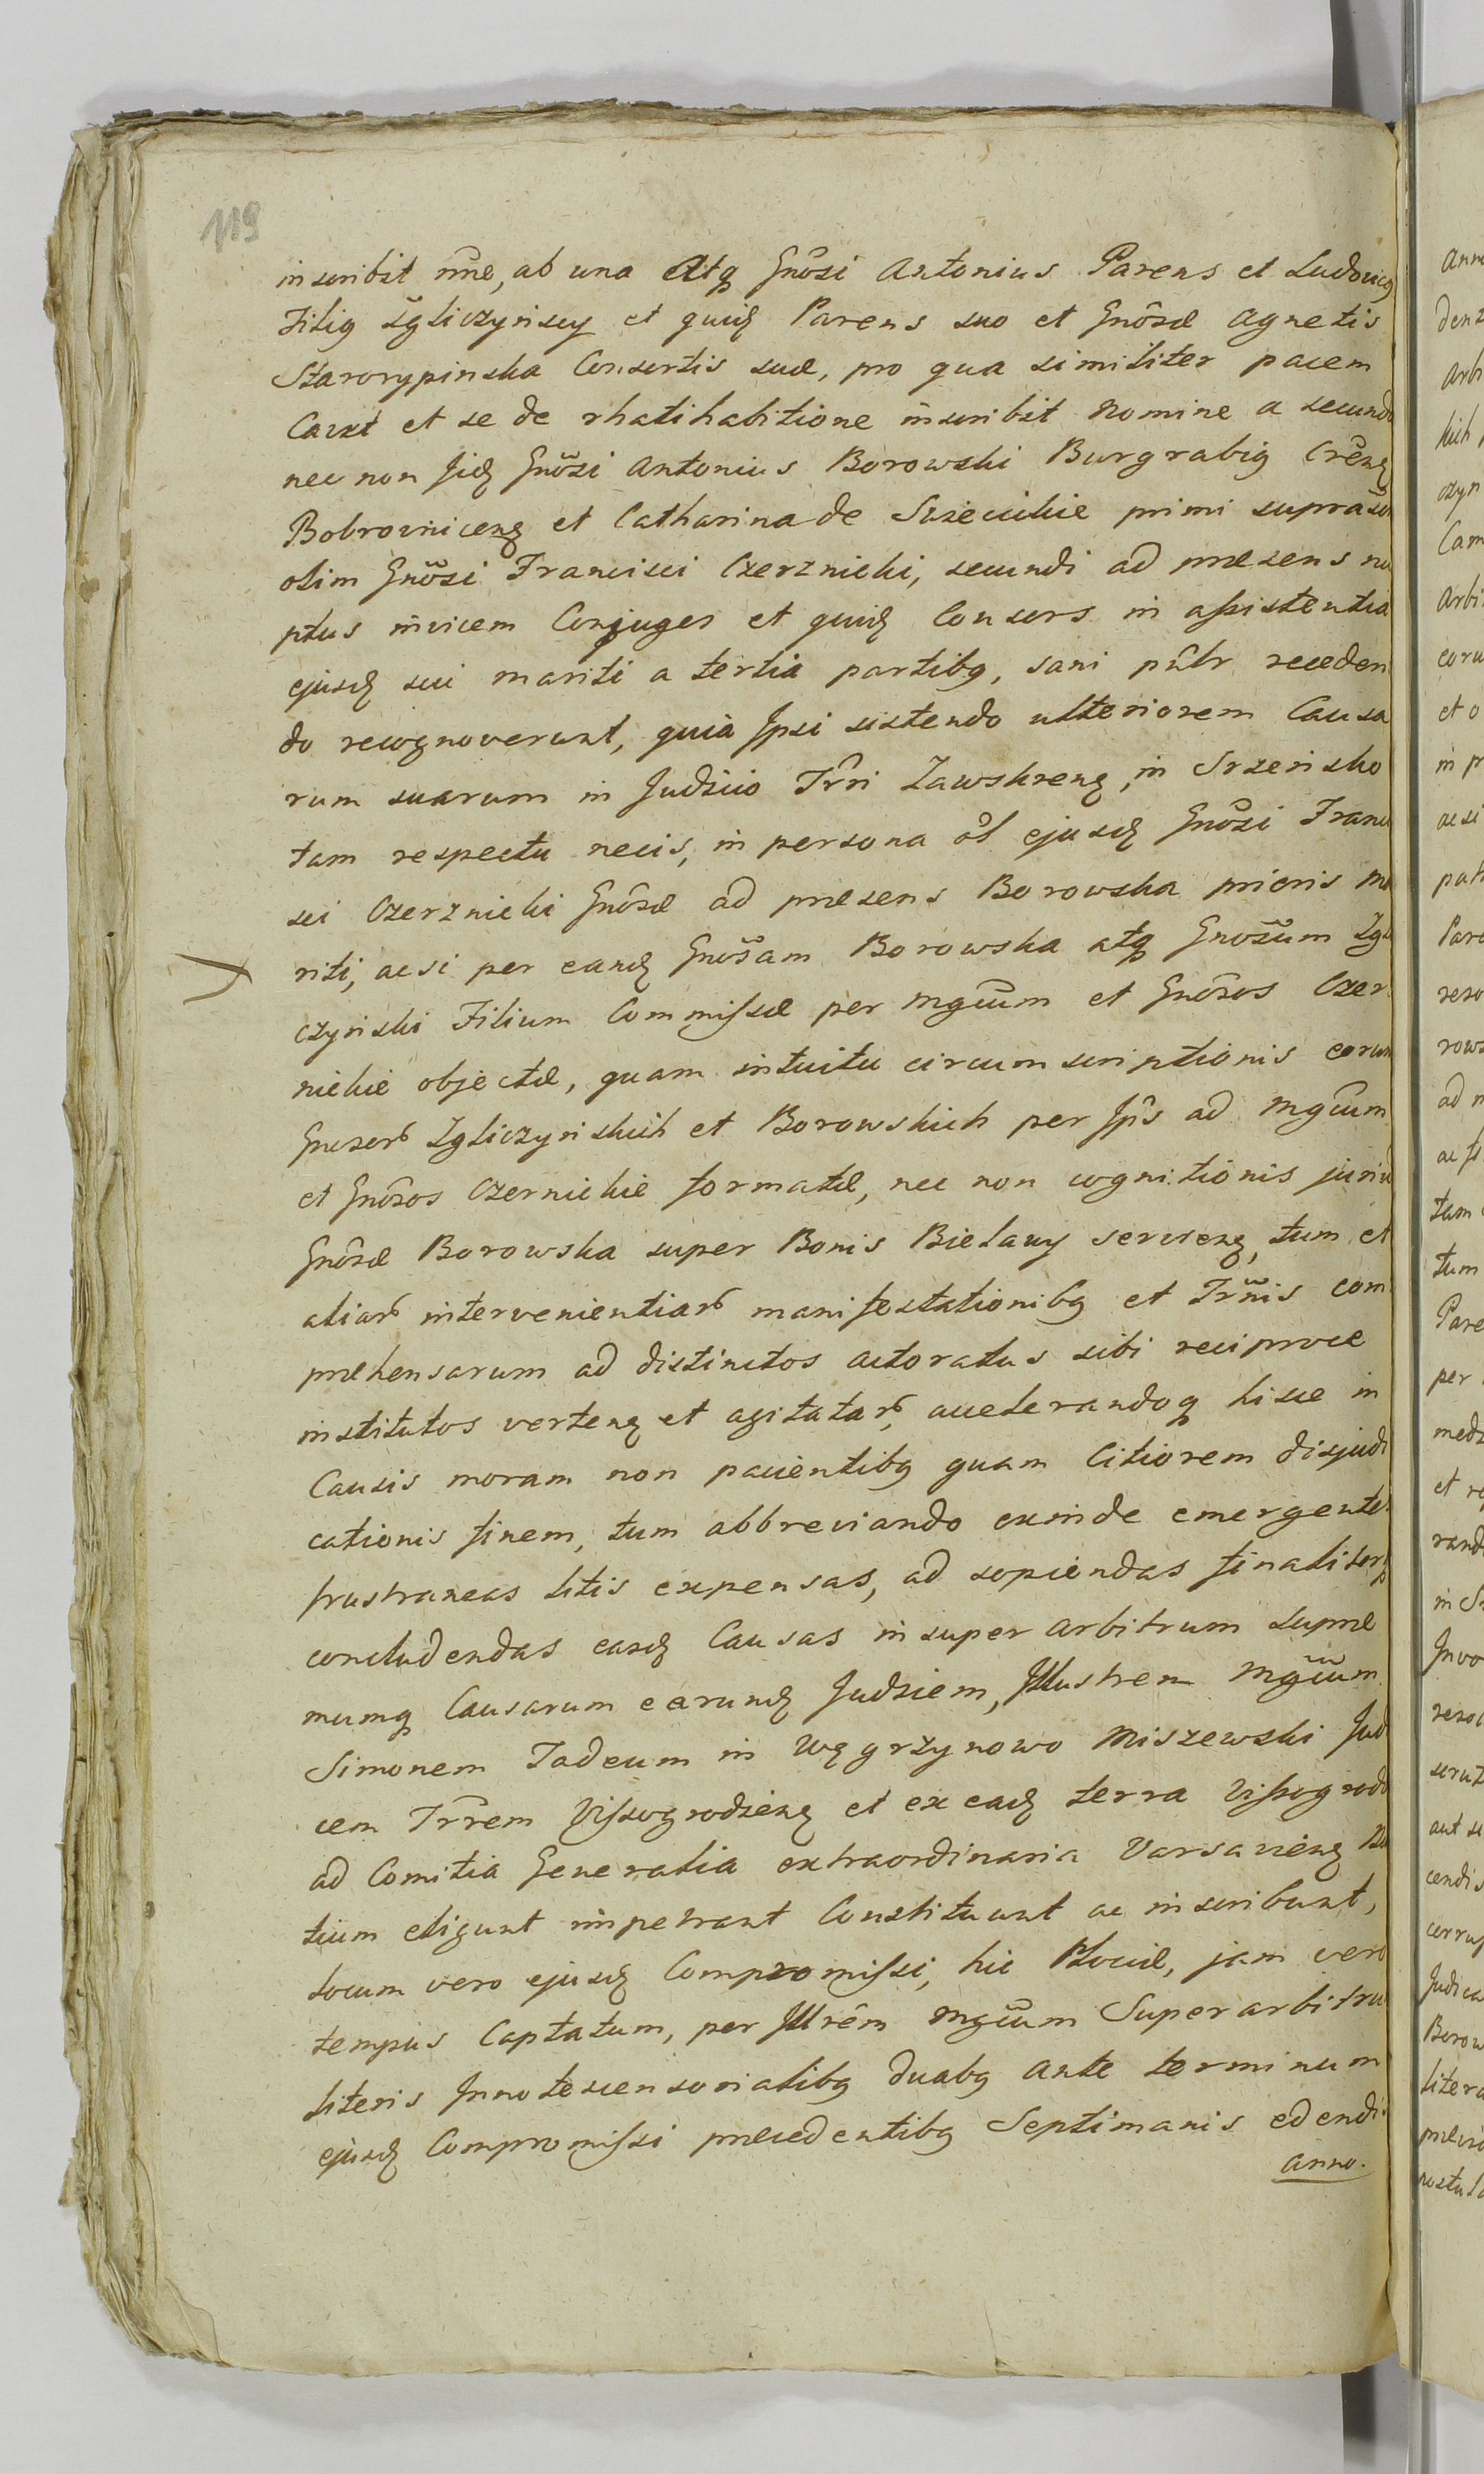 119
inscribit nne, ab una Atq Gnosi Antonius Parens et Ludovicg
Filig Zgliczynscy et quid Parens suo et Gnosæ Agnetis
Starorypinska Consortis suæ, pro qua similiter pacem
Cavet et se de rhatihabitione inscribit Nomine a secund
nec non Jid Gnosi Antonius Borowski Burgrabig Crenq
Bobrovnicenq et Catharina de primi
olim Gnosi Francisci Czerznicki, secundi ad præsens nu
ptus invicem Conjuges et quid Consors in assistentia
ejusd sui mariti a tertia partibg, sani pntr receden
do recognoverunt, quia Ipsi sistendo ulteriorem Causa
rum suarum in Judicio Trri Zawskrenq, in Srzensko
tam respectu necis, in persona ol ejusd Gnosi Franci
sci Czerznicki Gnosæ ad præsens Borowska prioris ma
riti, acsi per eand Gnosam Borowska atq Gnosum Zgli
czynski Filium Commissæ per Mgcum et Gnosos Czer
nickie objectæ, quam intuitu circumscriptionis eorum
Gnosor Zgliczynskich et Borowskich per Ips ad Mgcum
et Gnosos Czernickie formatæ, nec non cognitionis juriu
Gnosæ Borowska super Bonis Bielawy servienq, tum et
aliar intervenientiar manifestationibg et Trmis com
prehensarum ad distinctos actoratus sibi reciproce
institutos vertenq et agitatar, accelerandoq hisce in
Causis moram non pacientibg quam Citiorem disjudi
cationis finem, tum abbreviando exinde emergentes
frustraneas litis expensas, ad sopiendas finaliterq
concludendas easd Causas in super arbitrum supre
mumq Causarum earund Judicem, Illustrem Mgcum
Simonem Tadeum in Węgrzynowo Miszewski Jud
cem Trrem Vissogrodienq et ex ead terra Vissogrod
ad Comitia Generalia extraordinaria Varsavienq Nu
tium eligunt impetrant Constituunt ac inscribunt,
locum vero ejusd Compromissi, hic Plociæ, jam vero
tempus Captatum, per Illrem Mgcum Superarbitru
literis Innotescensorialibg duabg ante terminum
ejusd Compromissi præcedentibg Septimanis edendis
Anno.